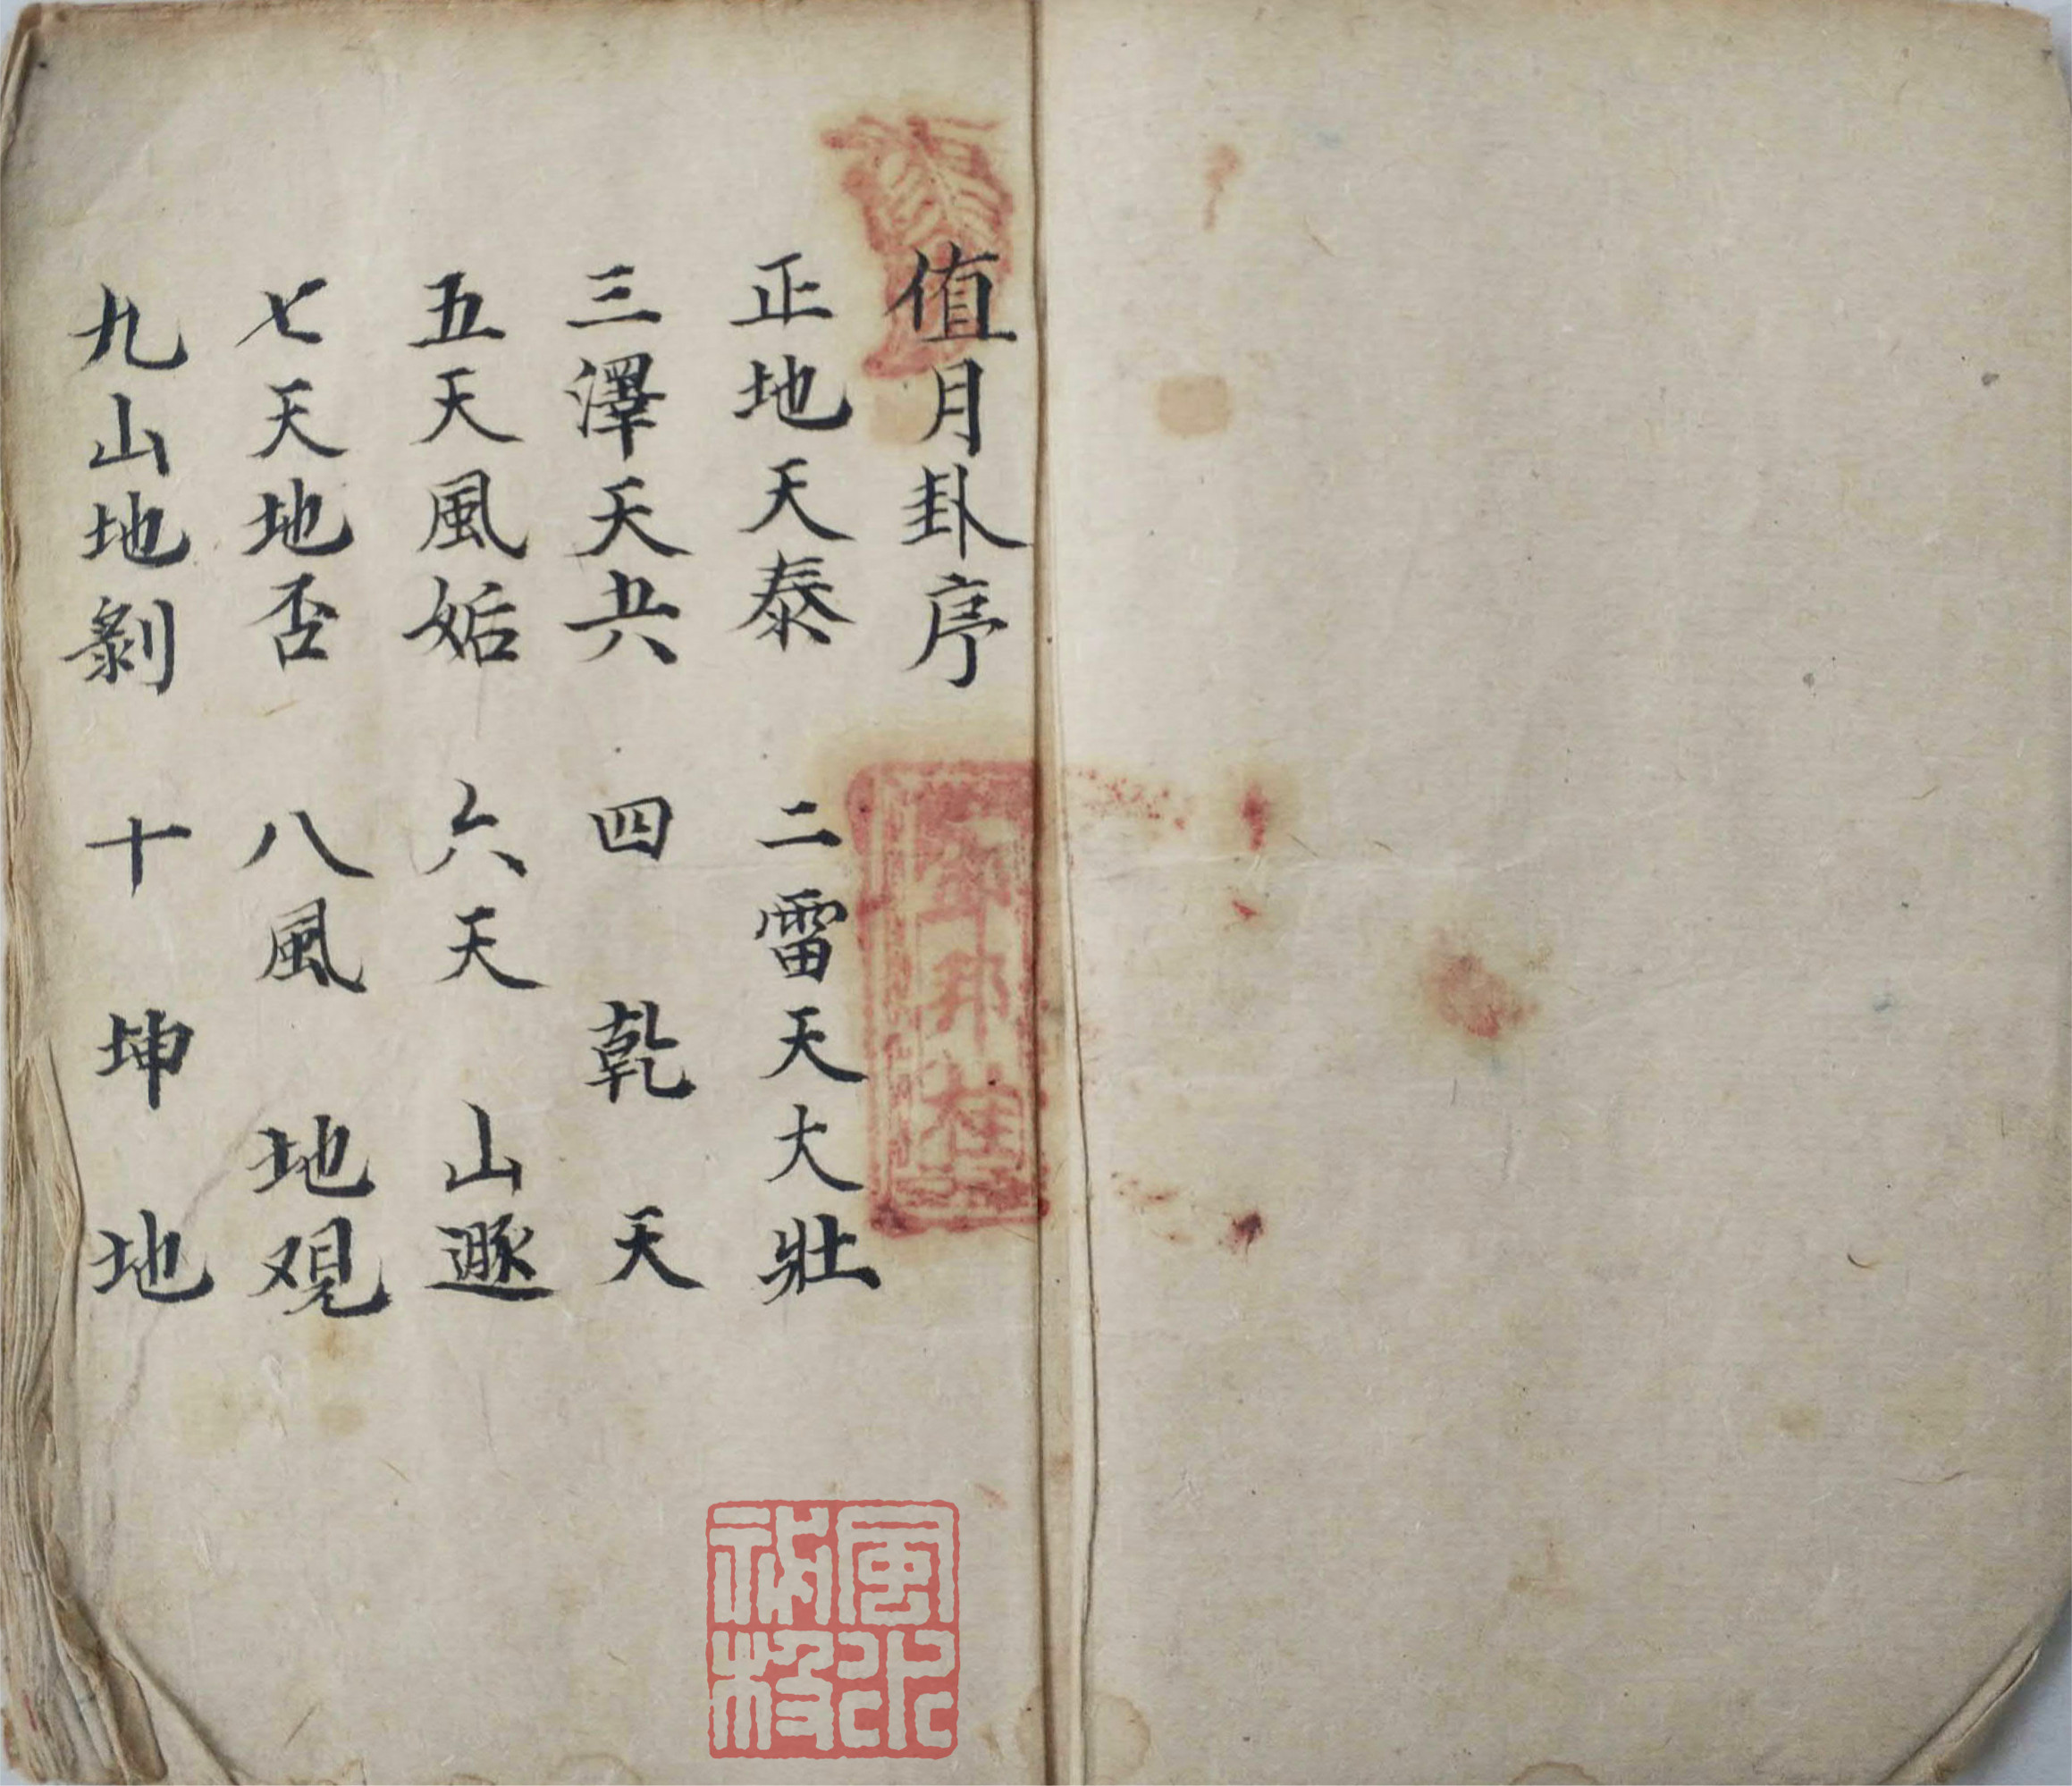 值月卦序
正地天泰 二雷天大壯
三澤天共 四乾天
五天風姤 六天山遯
七天地否 八風地观
九山地剝 十坤地
邦桂
風水